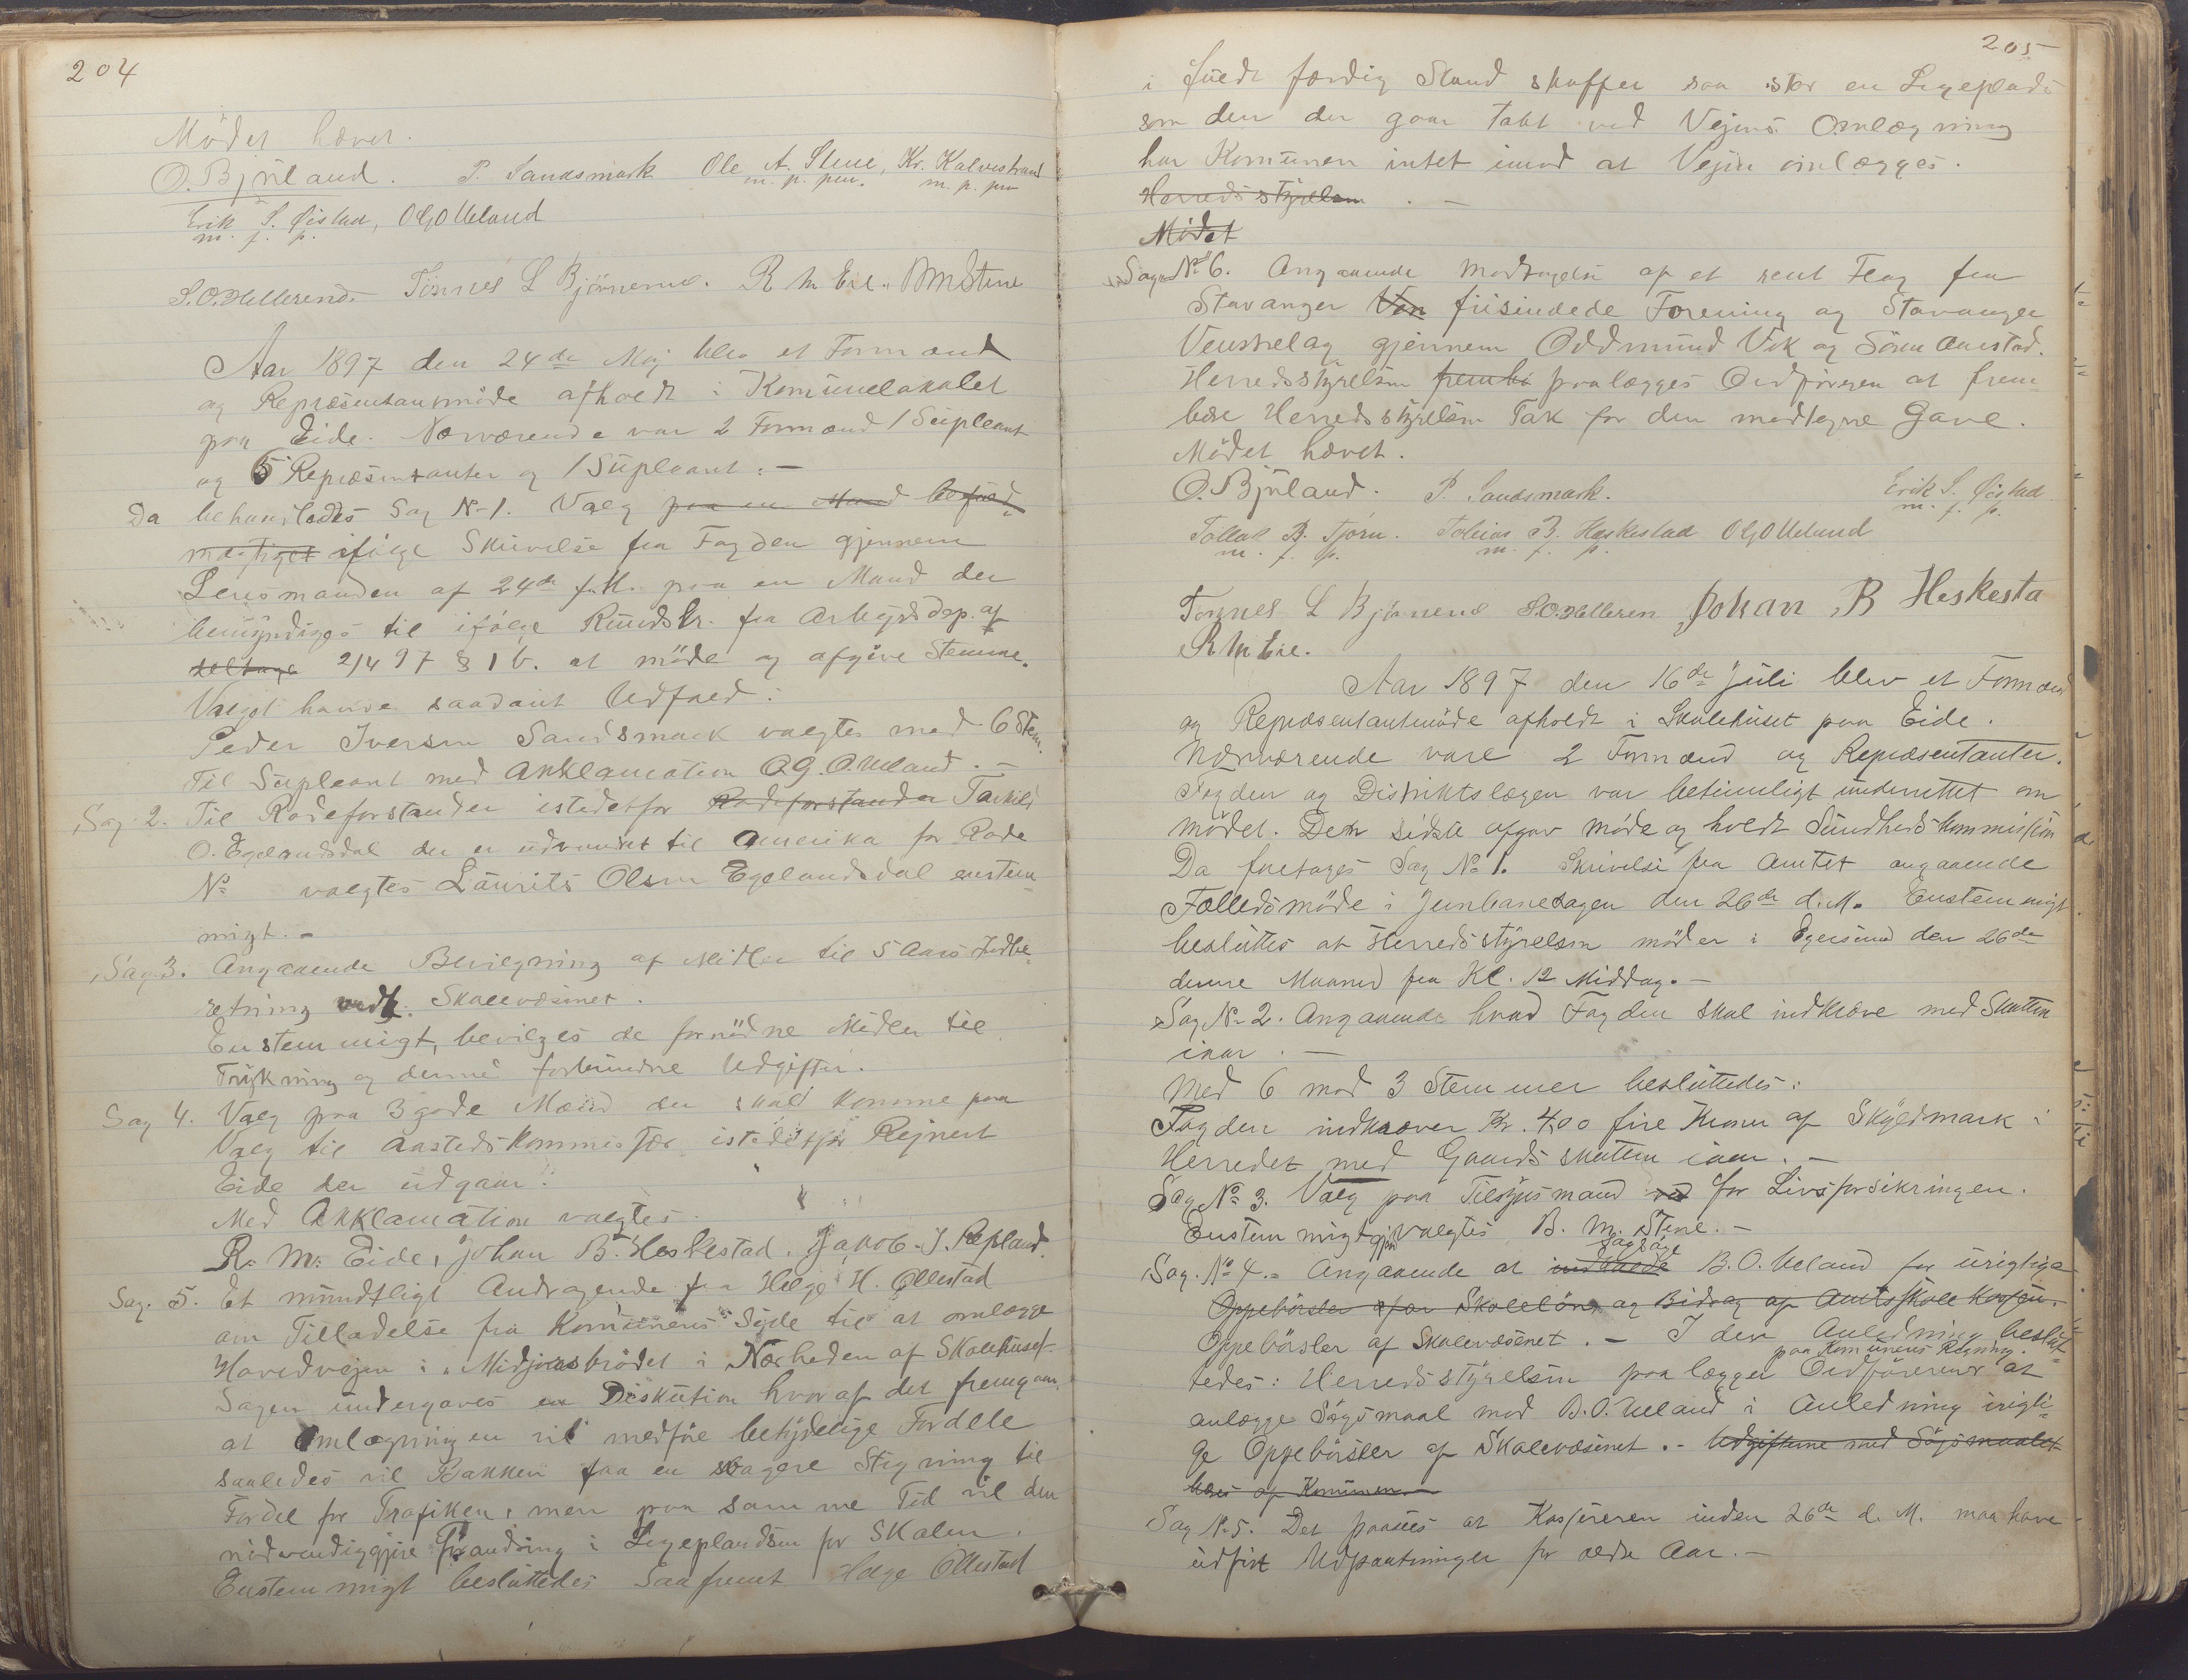 204
Mödet hævet.
O. Bjuland. P. Sandsmark Ole A. Stene, Kr. Kalvestrand
m. p. pen. m. p. pen
Erik S. Øistad, O G O Ueland
m. f. p.
S. O. Helleren Tönnes L Björnemo. R M Eie. BMStene
Aar 1897 den 24de Maj blev et Formænd
og Repræsentantmöde afholdt i Komunelokalet
paa Eide. Nærværende var 2 Formænd 1 Supleant
og 5 Repræsentanter og 1 Supleant. —
Da behandledes Sag No 1. Valg paa en Mand befuld-
mægtiget ifölge Skrivelse fra Fogden gjennem
Lensmanden af 24de f.M. paa en Mand der
bemyndiges til ifölge Rundskr. fra Arbejdsdep. af
deltage 2/4 97 § 1 b. at möde og afgive Stemme.
Valget havde saadant Udfald:
Peder Iversen Sandsmark valgtes med 6 Stem.
Til Supleant med Akklamation O G. O. Ueland. —
Sag 2. Til Rodeforstander istedetfor Rodeforstander Tarkild
O. Egelandsdal der er udvandret til Amerika for Rode
No valgtes Laurits Olsen Egelandsdal enstem-
migt. —
Sag 3. Angaaende Bevilgning af Midler til 5 Aars Indbe-
retning vedk. Skolevæsenet.
Enstemmigt, bevilges de fornödne Midler til
Trykning og dermed forbundne Udgifter.
Sag 4. Valg paa 3 gode Mænd der skal komme paa
Valg til Aastedskommissær istedetfor Rejnert
Eide der udgaar:
Med Akklamation valgtes
R. M. Eide, Johan B. Heskestad. Jakob J. Repland.
Sag. 5. Et mundtligt Andragende fra Helge H. Ollestad
om Tilladelse fra Komunens Side til at omlægge
Hovedvejen i Midjaasbrödet i Nærheden af Skolehuset
Sagen undergaves en Diskution hvoraf det fremgaar
at Omlægningen vil medföre betydelige Fordele
saaledes vil Bakken faa en svagere Stigning til
Fordel for Trafiken, men paa samme Tid vil den
nödvendiggjøre Forandring i Legepladsen for Skolen.
Enstemmigt besluttedes Saafremt Helge Ollestad
205
i fuldt færdig Stand skaffer saa stor en Legeplads
som den der gaar tabt ved Vejens Omlægning
har Komunen intet imod at Vejen omlægges.
Herredsstyrelsen. —
Mödet
Sag No 6. Angaaende Modtagelse af et rent Flag fra
Stavanger Ven frisindede Forening og Stavanger
Venstrelag gjennem Oddmund Vik og Sören Aarstad.
Herredsstyrelsen frembæ paalægges Ordföreren at frem-
bære Herredsstyrelsens Tak for den modtagne Gave.
Mödet hævet.
O. Bjuland. P. Sandsmark. Erik S. Øistad
m. f. p.
Tollak B. Tjörn. Tobias B. Heskestad O G O Ueland
m. f. p. m. f. p.
Tönnes L Björnemo S. O. Helleren Johan B Heskesta
R M Eie.
Aar 1897 den 16de Juli blev et Formænd
og Repræsentantmöde afholdt i Skolehuset paa Eide.
Nærværende vare 2 Formænd og Repræsentanter.
Fogden og Distriktslægen var betimeligt underrettet om
mödet. Den sidste afgav möde og holdt Sundhedskommission
Da foretages Sag No 1. Skrivelse fra Amtet angaaende
Fælledsmöde i Jernbanesagen den 26de d.M. Enstemmigt
besluttes at Herredsstyrelsen möder i Egersund den 26de
denne Maaned fra Kl. 12 Middag. —
Sag No 2. Angaaende hvad Fogden skal indkræve med Skatten
iaar. —
Med 6 mod 3 Stemmer besluttedes:
Fogden indkræver Kr. 4,00 fire Kroner af Skyldmark i
Herredet med Gaardsskatten iaar. —
Sag No 3. Valg paa Tilsynsmand ved for Livsforsikringen.
Enstemmigt gjen valgtes B. M. Stene. —
Sag. No 4. Angaaende at indkræve sagsöge B. O. Ueland for urigtige
Oppebörsler afor Skolelön og Bidrag af Amtsskolekassen.
Oppebörsler af Skolevæsenet. — I den Anledning beslut-
tedes: Herredsstyrelsen paalægger Ordföreren paa Komunens Regning at
anlægge Sögsmaal mod B. O. Ueland i Anledning urigti-
ge Oppebörsler af Skolevæsenet. — Udgifterne med Sögsmaalet
bæres af Komunen
Sag No 5. Det paasees at Kassereren inden 26de d. M. maa have
udfört Udpantninger for ældre Aar. —